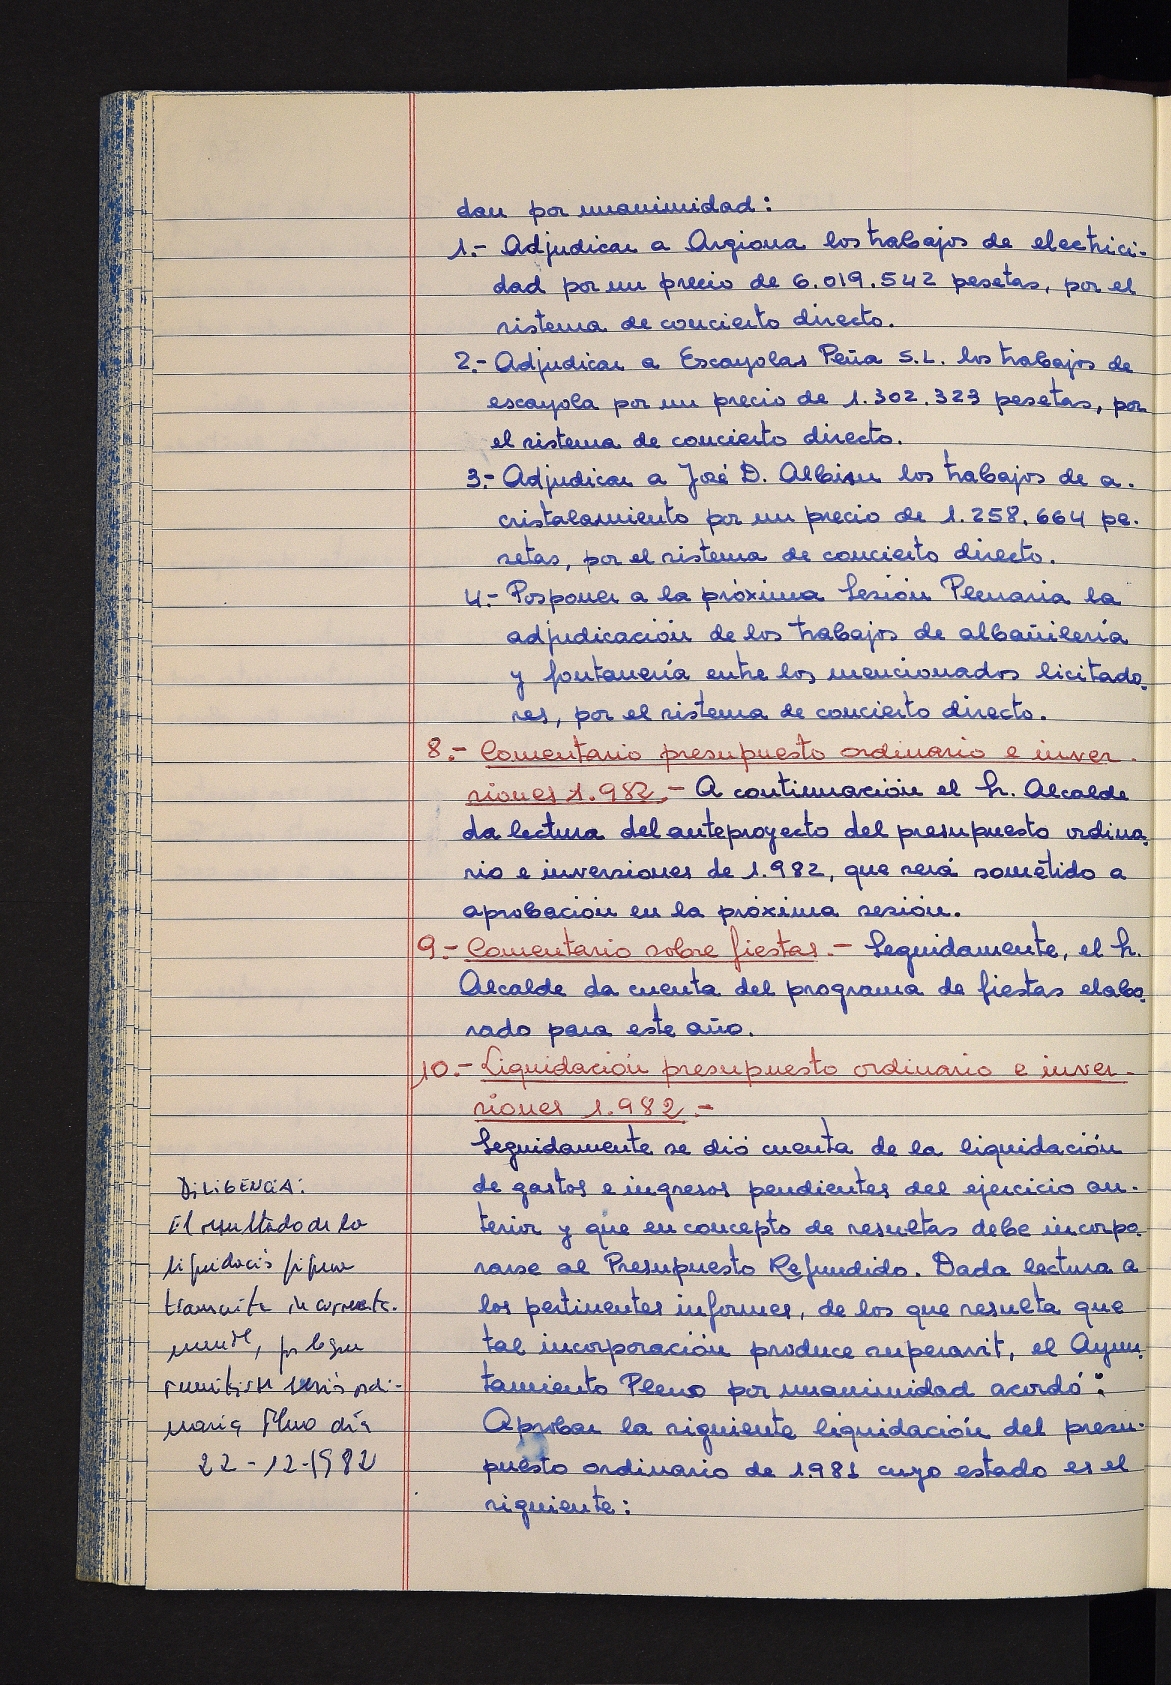 dan por unanimidad:
1.- Adjudicar a Argiona los trabajos de electrici-
dad por un precio de 6.019.542 pesetas, por el
sistema de concierto directo.
2.- Adjudicar a Escayolas Peña S.L. los trabajos de
escayola por un precio de 1.302.323 pesetas, por
el sistema de concierto directo.
3.- Adjudicar a José D. Albisu los trabajos de a-
cristalamiento por un precio de 1.258.664 pe-
setas, por el sistema de concierto directo.
4.- Posponer a la próxima Sesión Plenaria la
adjudicación de los trabajos de albañilería
y fontanería entre los mencionados licitado-
res, por el sistema de concierto directo.
8.- Comentario presupuesto ordinario e inver-
siones 1.982.- A continuación el Sr. Alcalde
da lectura del anteproyecto del presupuesto ordina-
rio e inversiones de 1.982, que será sometido a
aprobación en la próxima sesión.
9.- Comentario sobre fiestas.- Seguidamente, el Sr.
Alcalde da cuenta del programa de fiestas elabo-
rado para este año.
10.- Liquidación presupuesto ordinario e inver-
siones 1.982.-
Seguidamente se dió cuenta de la liquidación
de gastos e ingresos pendientes del ejercicio an-
terior y que en concepto de resultas debe incorpo-
rarse al Presupuesto Refundido. Dada lectura a
los pertinentes informes, de los que resulta que
tal incorporación produce superavit, el Ayun-
tamiento Pleno por unanimidad acordó:
Aprobar la siguiente liquidación del presu-
puesto ordinario de 1981 cuyo estado es el
siguiente:
DILIGENCIA:
El resultado de la
liquidació figura
transcrita incorrecta-
ment,
sessió ordi-
naria Pleno día
22-12-1982